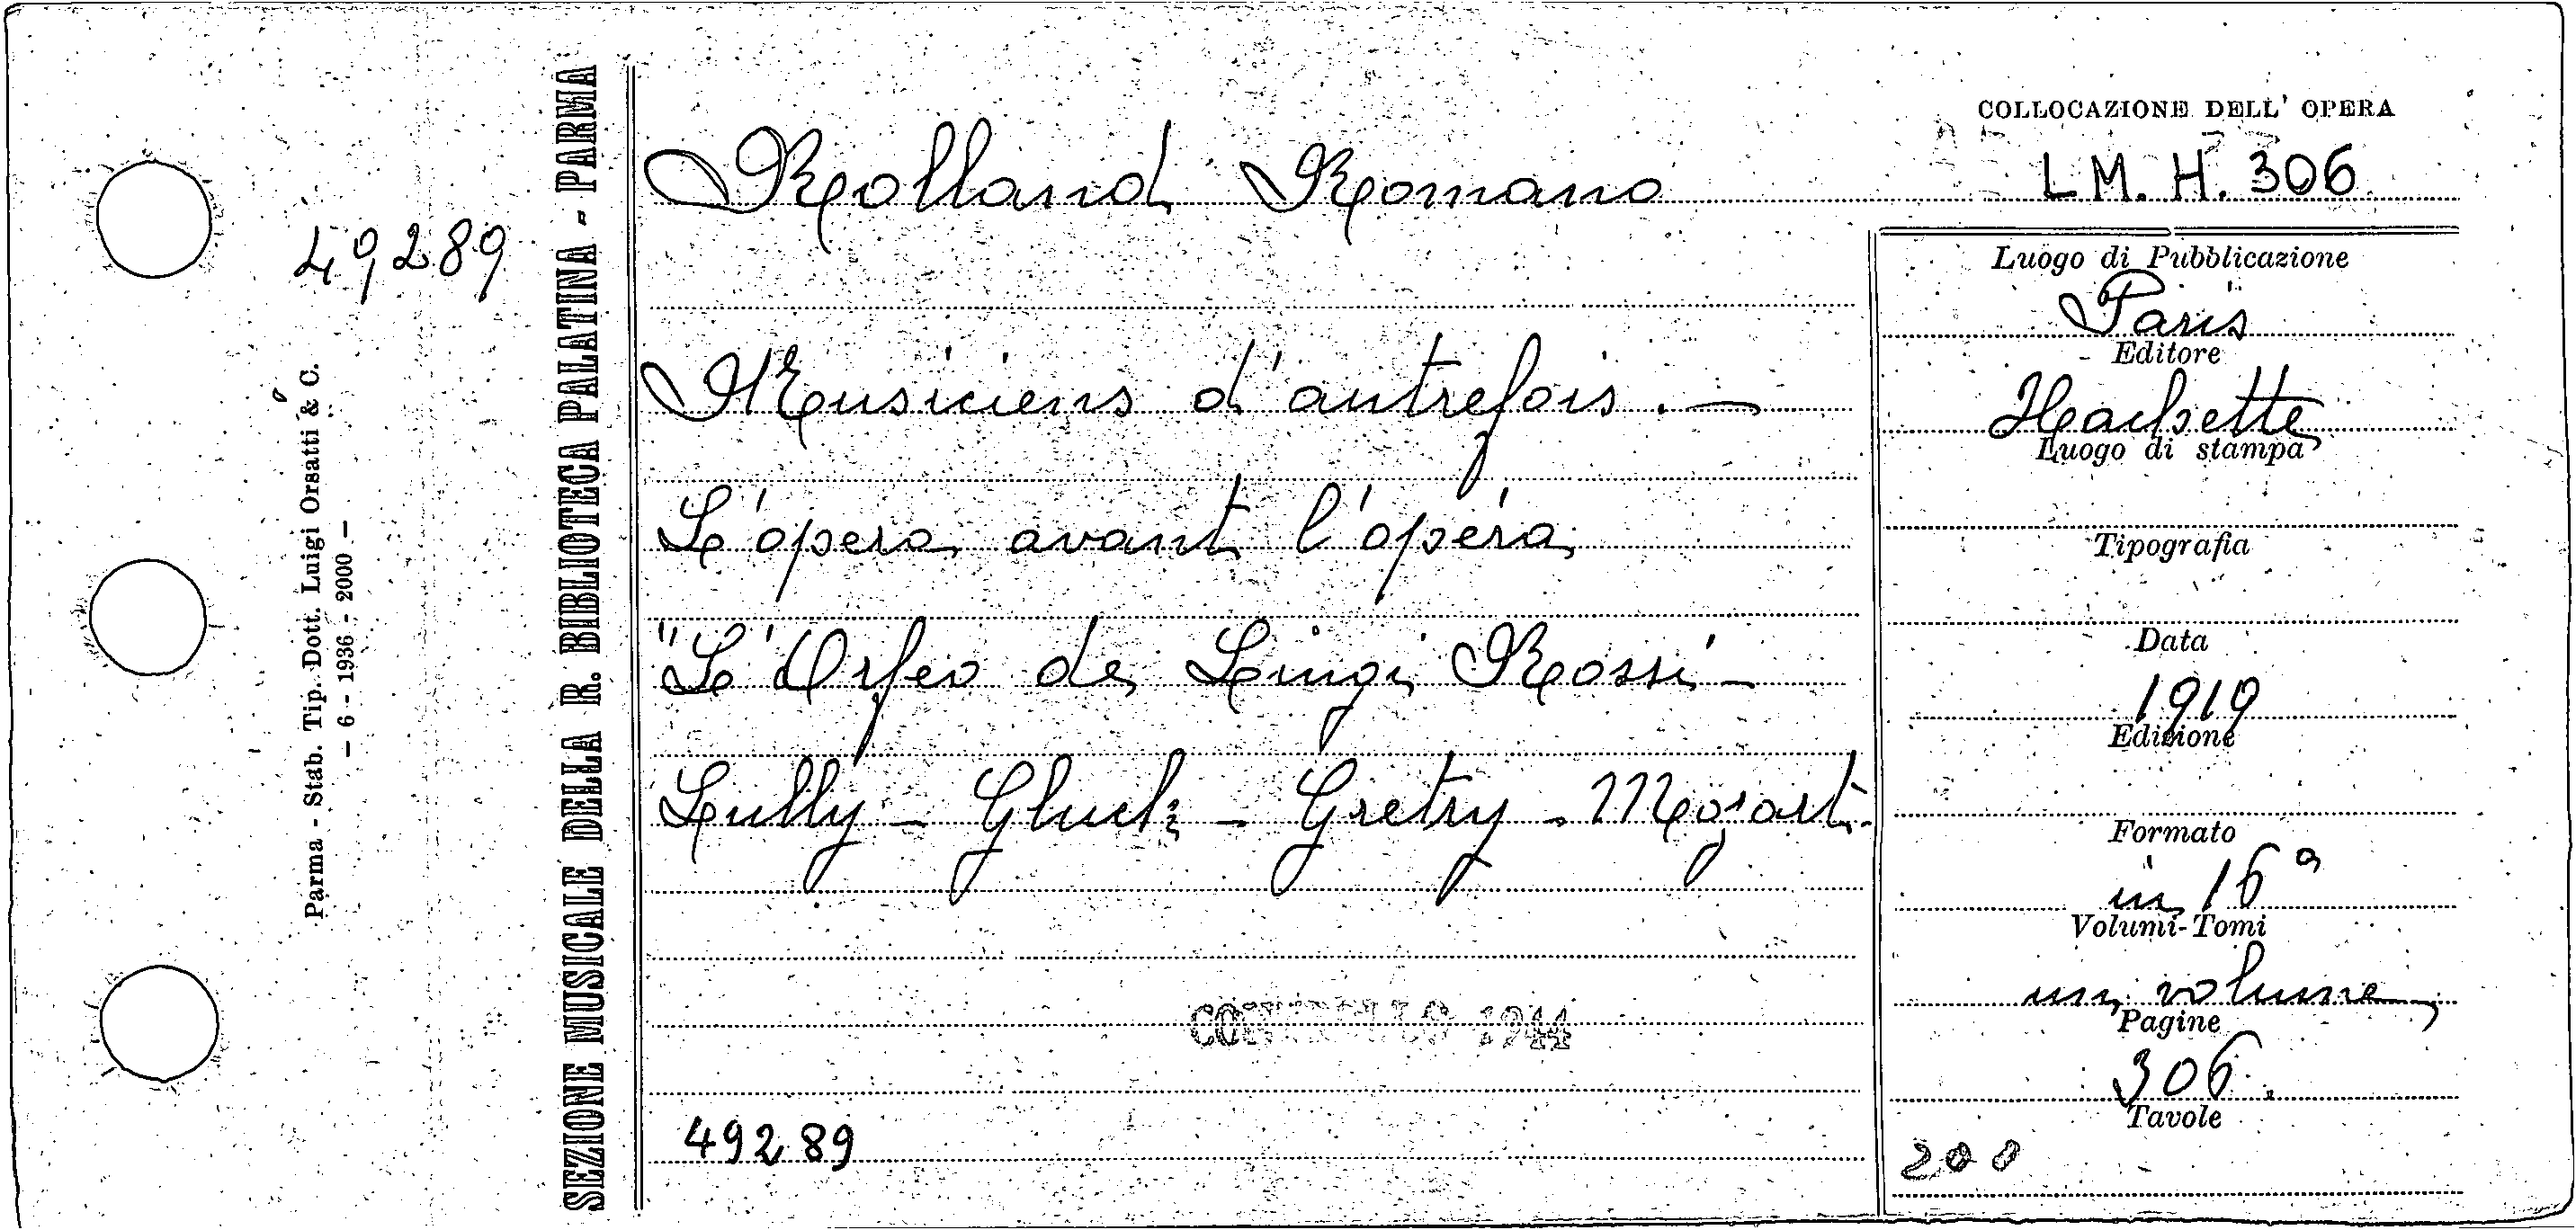 COLLOCAZIONE DELL' OPERA
LM. H. 306
Rolland Romano
49289
Musiciens d'autrefois. —
L'opera avant l'opéra
"L'Orfeo de Luigi Rossi -
Lully - Gluck - Gretry - Mozart.
1944
49289
Luogo di Pubblicazione
Paris
Editore
Hachette
Luogo di stampa
Tipografia
Data
1919
Edizione
Formato
in 16º
Volumi-Tomi
un volume
Pagine
306.
Tavole
200
SEZIONE MUSICALE DELLA R. BIBLIOTECA PALATINA - PARMA
Parma - Stab. Tip. Dott. Luigi Orsatti & C.
— 6 - 1936 - 2000 —